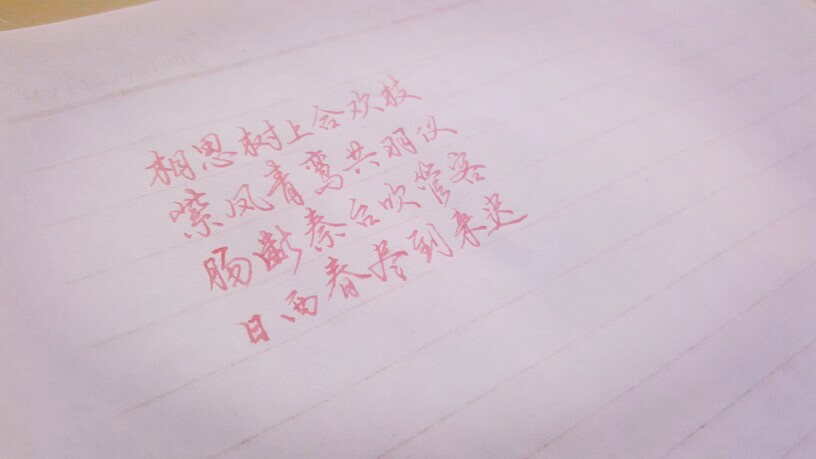 相思树上合欢枝
紫凤青鸾共羽仪
肠斷秦台吹管客
日西春尽到来迟